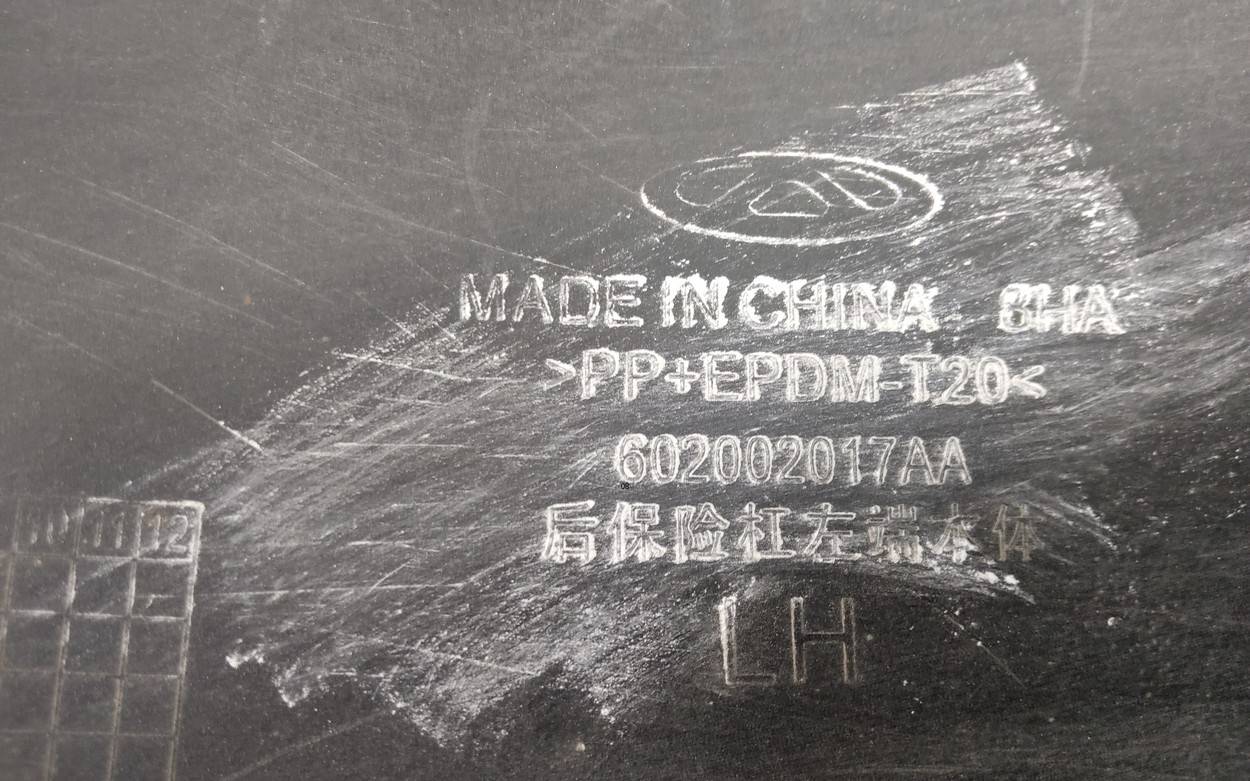 MADE IN CHINA 8HA
>PP+EPDM-T20<
602002017AA
后保险杠左端本体
LH
11 12